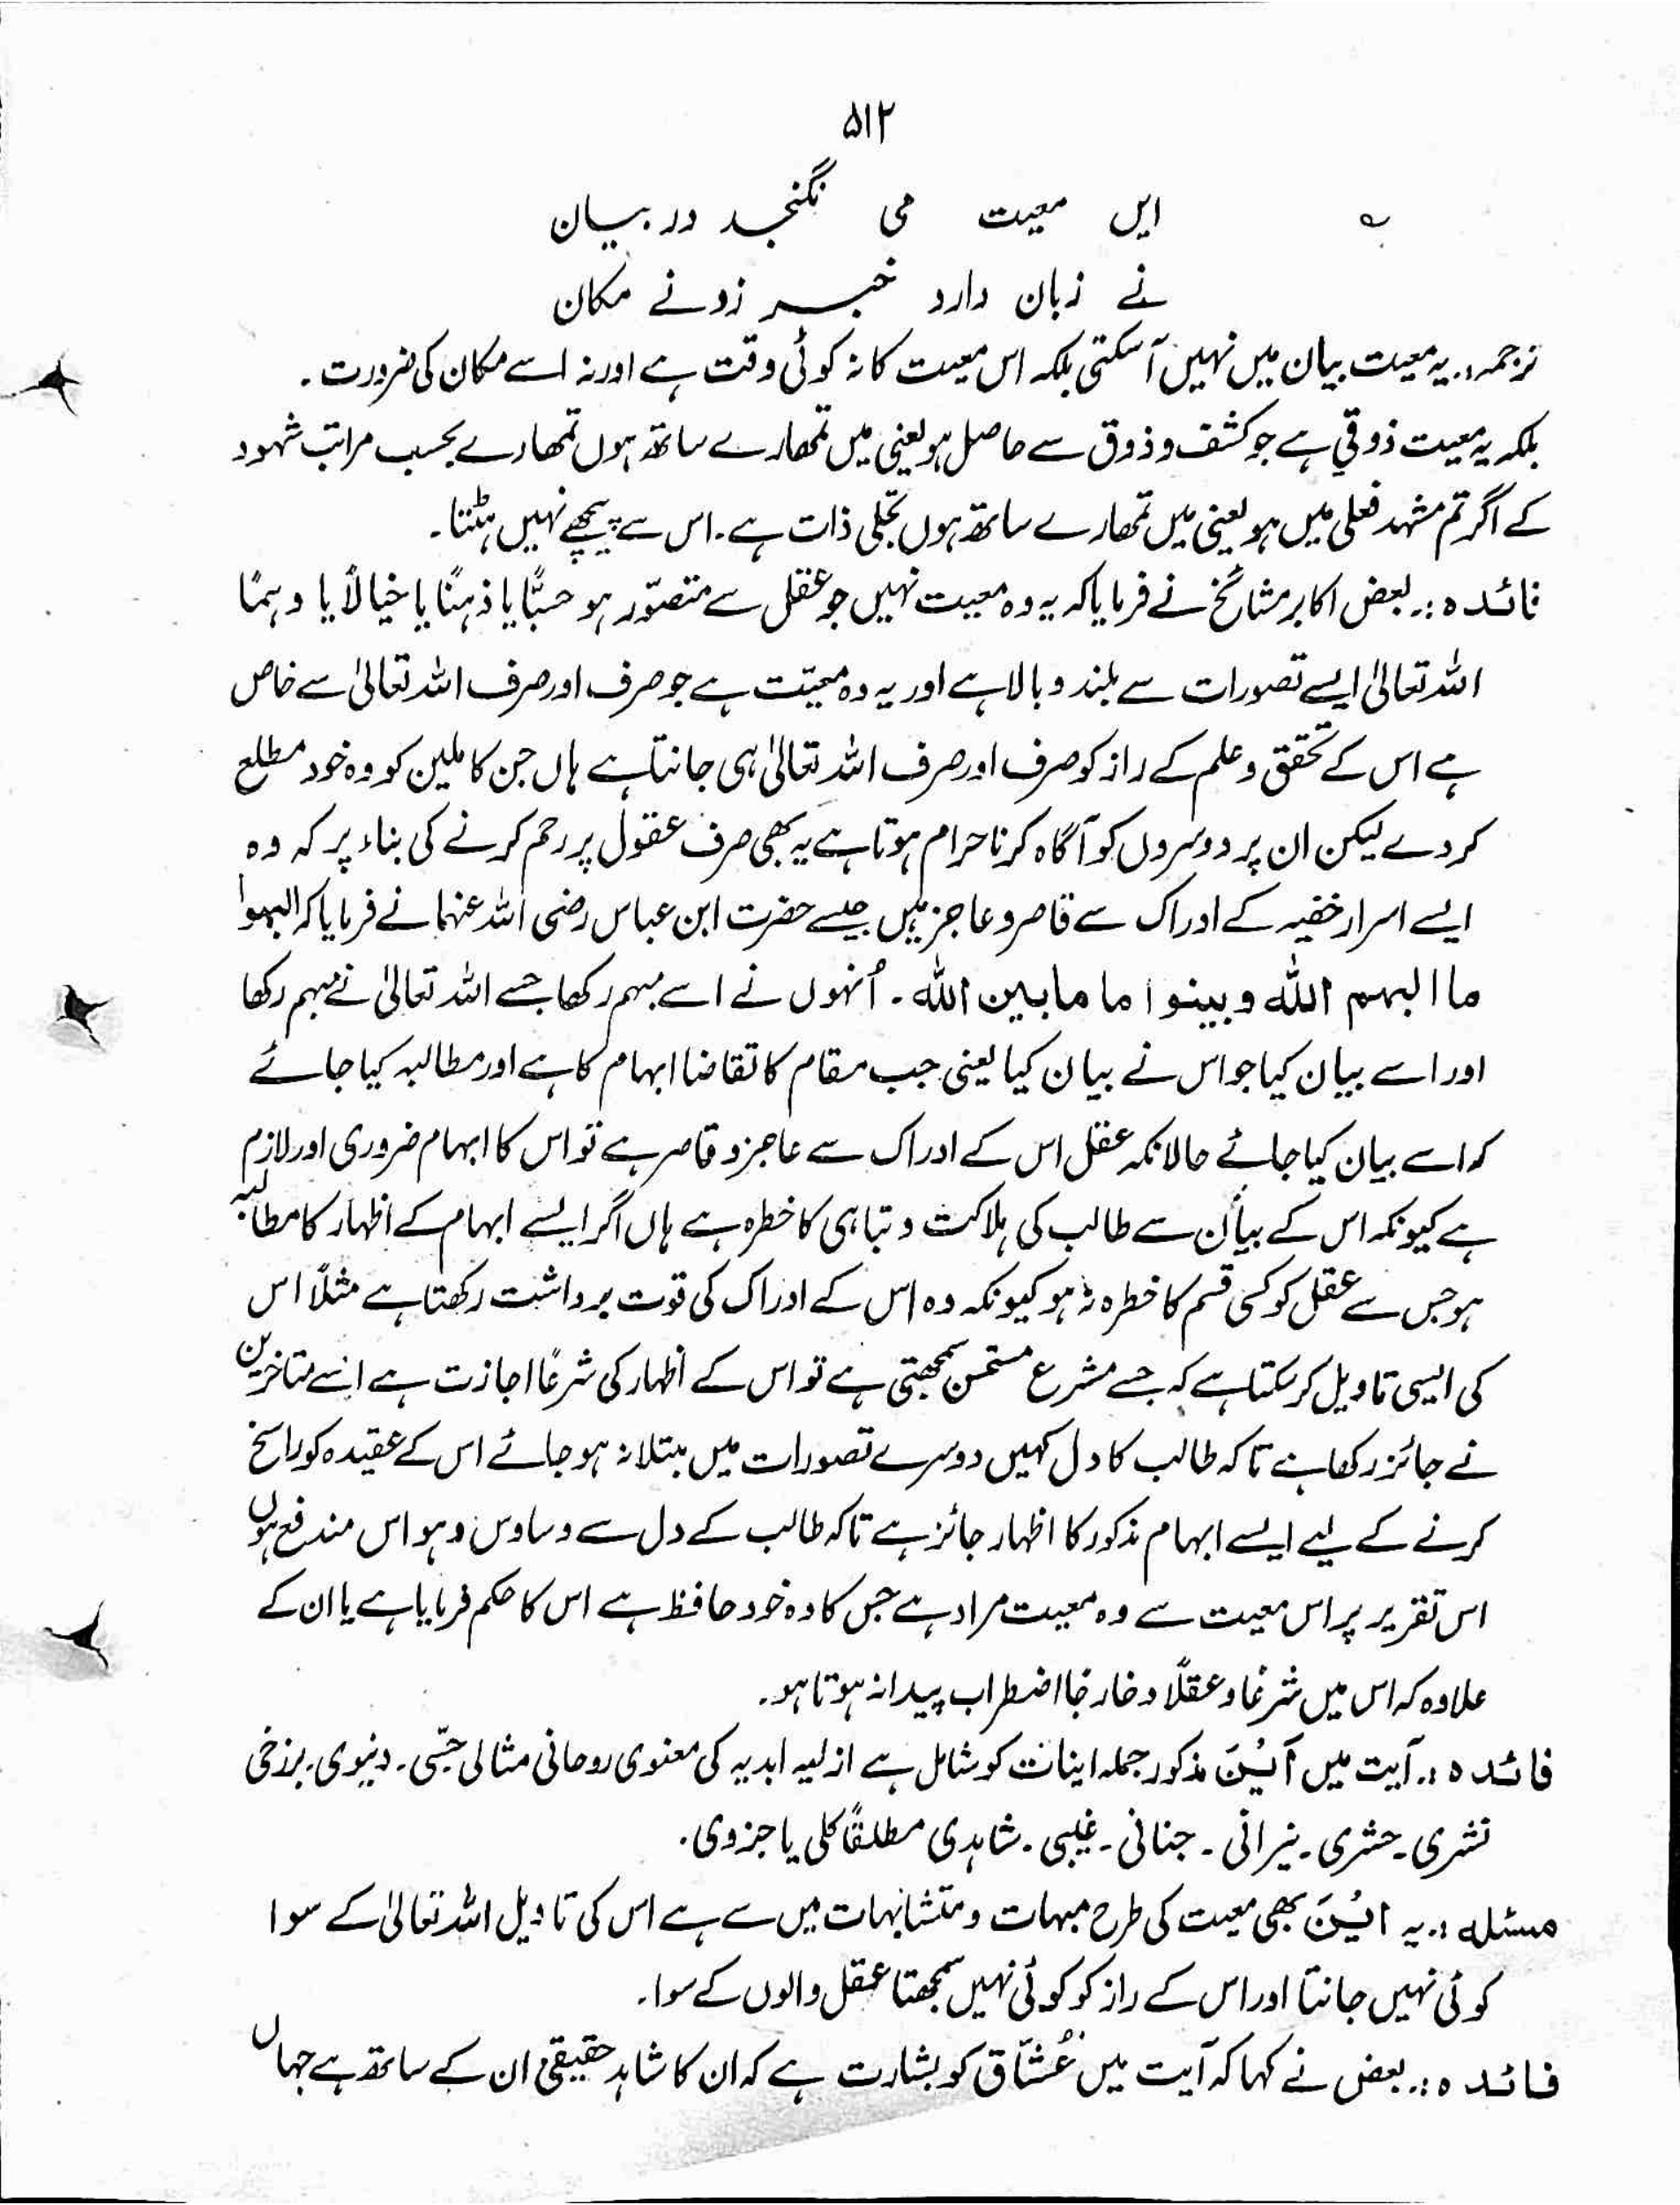 ۵۱۲
؎ ایں معیت می نگنجد در بیان
نے زبان دارد خبر زو نے مکان
ترجمہ:۔ یہ معیت بیان میں نہیں آسکتی بلکہ اس معیت کا نہ کوئی وقت ہے اور نہ اسے مکان کی ضرورت۔
بلکہ یہ معیت ذوقی ہے جو کشف و ذوق سے حاصل ہو یعنی میں تمھارے ساتھ ہوں تمھارے بحسب مراتب شہود
کے اگر تم مشہد فعلی میں ہو یعنی میں تمھارے ساتھ ہوں تجلی ذات ہے۔ اس سے پیچھے نہیں ہٹتا۔
فائدہ:۔ بعض اکابر مشائخ نے فرمایا کہ یہ وہ معیت نہیں جو عقل سے متصوّر ہو حسًّا یا ذہنًا یا خیالاً یا وہمًا
اللہ تعالیٰ ایسے تصورات سے بلند و بالا ہے اور یہ وہ معیّت ہے جو صرف اور صرف اللہ تعالیٰ سے خاص
ہے اس کے تحقق و علم کے راز کو صرف اور صرف اللہ تعالیٰ ہی جانتا ہے ہاں جن کاملین کو وہ خود مطلع
کردے لیکن ان پر دوسروں کو آگاہ کرنا حرام ہوتا ہے یہ بھی صرف عقول پر رحم کرنے کی بناء پر کہ وہ
ایسے اسرار خفیہ کے ادراک سے قاصر و عاجز ہیں جیسے حضرت ابن عباس رضی اللہ عنہما نے فرمایا کہ البهموا
ما البهم الله وبينوا ما ما بين الله۔ اُنہوں نے اسے مبہم رکھا جسے اللہ تعالیٰ نے مبہم رکھا
اور اسے بیان کیا جو اس نے بیان کیا یعنی جب مقام کا تقاضا ابہام کا ہے اور مطالبہ کیا جائے
کہ اسے بیان کیا جائے حالانکہ عقل اس کے ادراک سے عاجز و قاصر ہے تو اس کا ابہام ضروری اور لازم
ہے کیونکہ اس کے بیان سے طالب کی ہلاکت و تباہی کا خطرہ ہے ہاں اگر ایسے ابہام کے اظہار کا مطالبہ
ہو جس سے عقل کو کسی قسم کا خطرہ نہ ہو کیونکہ وہ اس کے ادراک کی قوت برداشت رکھتا ہے مثلاً اس
کی ایسی تاویل کرسکتا ہے کہ جسے مشرع مستحسن سمجھتی ہے تو اس کے اظہار کی شرعاً اجازت ہے اسے متاخرین
نے جائز رکھا ہے تاکہ طالب کا دل کہیں دوسرے تصورات میں مبتلا نہ ہوجائے اس کے عقیدہ کو راسخ
کرنے کے لیے ایسے ابہام مذکور کا اظہار جائز ہے تاکہ طالب کے دل سے وساوس و ہواس مندفع ہوں
اس تقریر پر اس معیت سے وہ معیت مراد ہے جس کا وہ خود حافظ ہے اس کا حکم فرمایا ہے یا ان کے
علاوہ کہ اس میں شرعًا و عقلاً و خارجًا اضطراب پیدا نہ ہوتا ہو۔
فائدہ:۔ آیت میں اَیْنَ مذکور جملہ اینات کو شامل ہے ازلیہ ابدیہ کی معنوی روحانی مثالی حسّی۔ دنیوی۔ برزخی
نشری۔ حشری۔ نیرانی۔ جنانی۔ غیبی۔ شاہدی مطلقاً کلی یا جزوی۔
مسئلہ:۔ یہ ایْنَ بھی معیت کی طرح مبہات و متشابہات میں سے ہے اس کی تاویل اللہ تعالیٰ کے سوا
کوئی نہیں جانتا اور اس کے راز کو کوئی نہیں سمجھتا عقل والوں کے سوا۔
فائدہ:۔ بعض نے کہا کہ آیت میں عُشّاق کو بشارت ہے کہ ان کا شاہد حقیقی ان کے ساتھ ہے جہاں